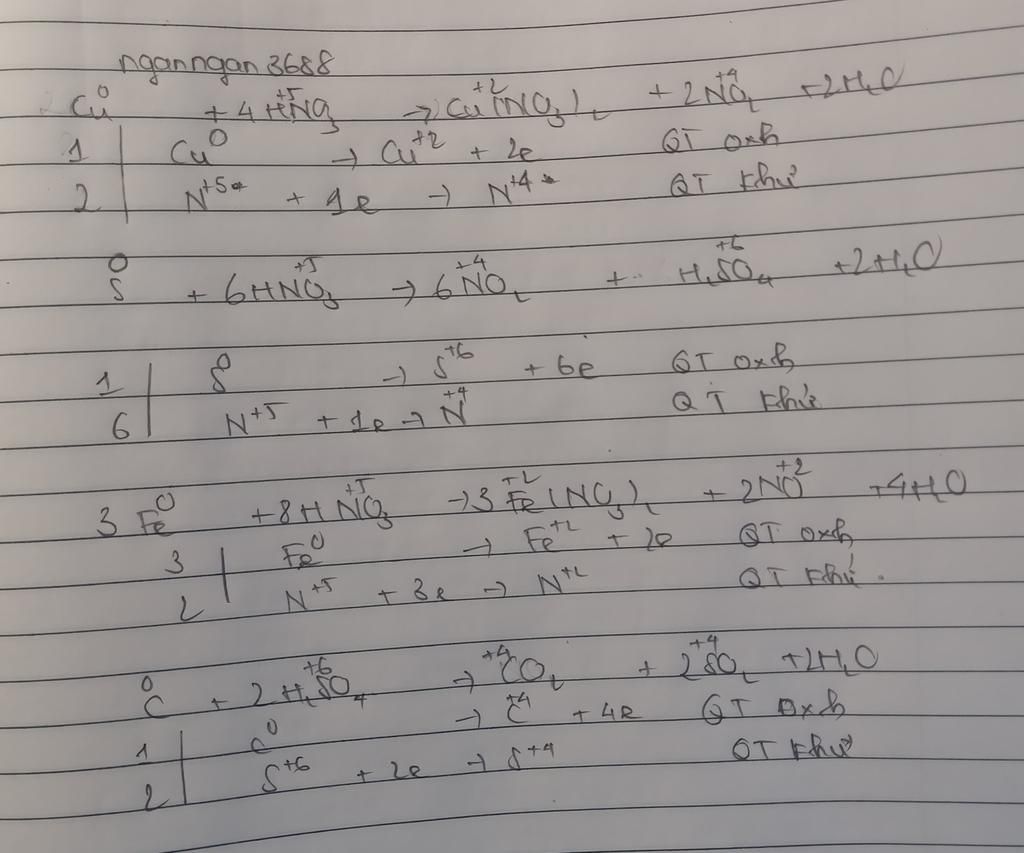 nganngan3688
Cu⁰ + 4HN⁺⁵O₃ → Cu⁺²(NO₃)₂ + 2N⁺⁴O₂ + 2H₂O
1 | Cu⁰ → Cu⁺² + 2e QT oxh
2 | N⁺⁵ + 1e → N⁺⁴ QT khử
S⁰ + 6HN⁺⁵O₃ → 6N⁺⁴O₂ + H₂S⁺⁶O₄ + 2H₂O
1 | S⁰ → S⁺⁶ + 6e QT oxh
6 | N⁺⁵ + 1e → N⁺⁴ QT khử
3Fe⁰ + 8HN⁺⁵O₃ → 3Fe⁺²(NO₃)₂ + 2NO⁺² + 4H₂O
3 | Fe⁰ → Fe⁺² + 2e QT oxh
2 | N⁺⁵ + 3e → N⁺² QT khử.
C⁰ + 2H₂S⁺⁶O₄ → ⁺⁴CO₂ + 2S⁺⁴O₂ + 2H₂O
1 | C⁰ → C⁺⁴ + 4e QT oxh
2 | S⁺⁶ + 2e → S⁺⁴ QT khử